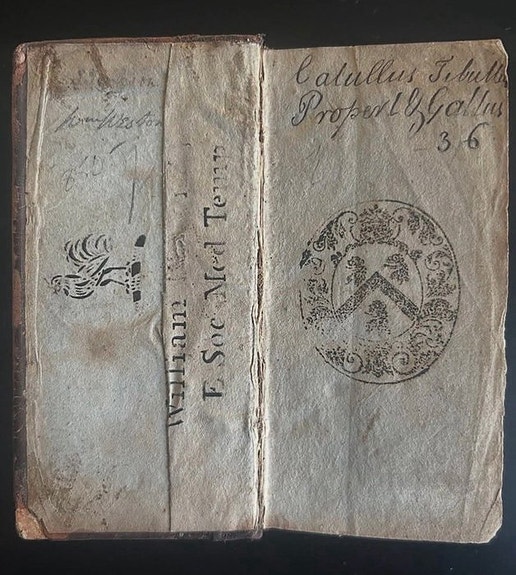 Wm Weston
William
E Soc Med Temp
Catullus Tibull
Propert & Gallus
3 6